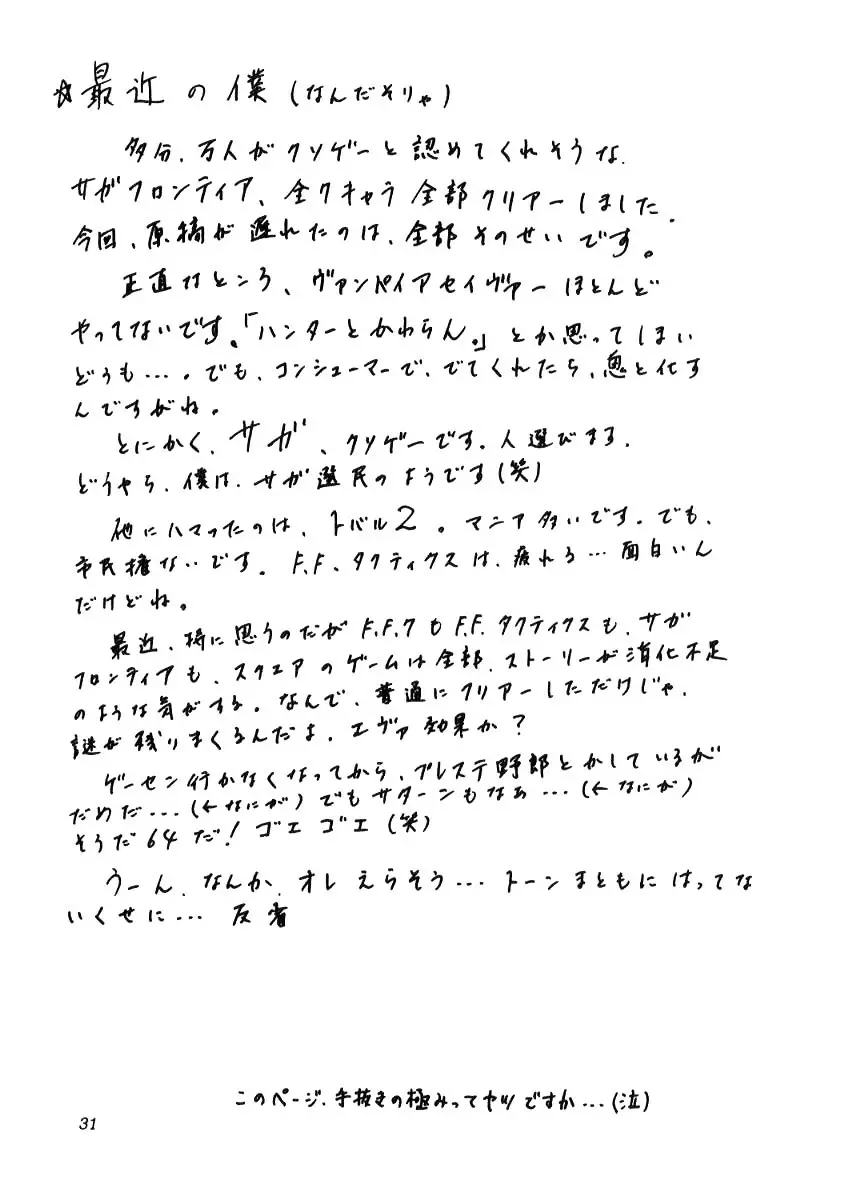 ☆最近の僕(なんだそりゃ)
多分、万人がクソゲーと認めてくれそうな、
サガフロンティア、全クキャラ全部クリアーしました。
今回、原稿が遅れたのは、全部そのせいです。
正直なところ、ヴァンパイアセイヴァーほとんど
やってないです。「ハンターとかわらん。」とか思ってしまい
どうも…。でも、コンシューマーで、でてくれたら、鬼と化す
んですがね。
とにかく、サガ、クソゲーです。人選びまる、
どうやら、僕は、サガ選民のようです(笑)
他にハマったのは、トバル2。マニア多いです。でも、
市民権ないです。F.F、タクティクスは、疲れる…面白いん
だけどね。
最近、特に思うのだがF.F.7もF.F.タクティクスも、サガ
フロンティアも、スクエアのゲームは全部、ストーリーが消化不足
のような気がする。なんで、普通にクリアーしただけじゃ、
謎が残りまくるんだよ、エヴァ効果か?
ゲーセン行かなくなってから、プレステ野郎とかしているが
だめだ…(←なにが)でもサターンもなぁ…(←なにが)
そうだ64だ!ゴエゴエ(笑)
うーん、なんか、オレえらそう…トーンまともにはってな
いくせに…反省
このページ、手抜きの極みってヤツですか…(泣)
31